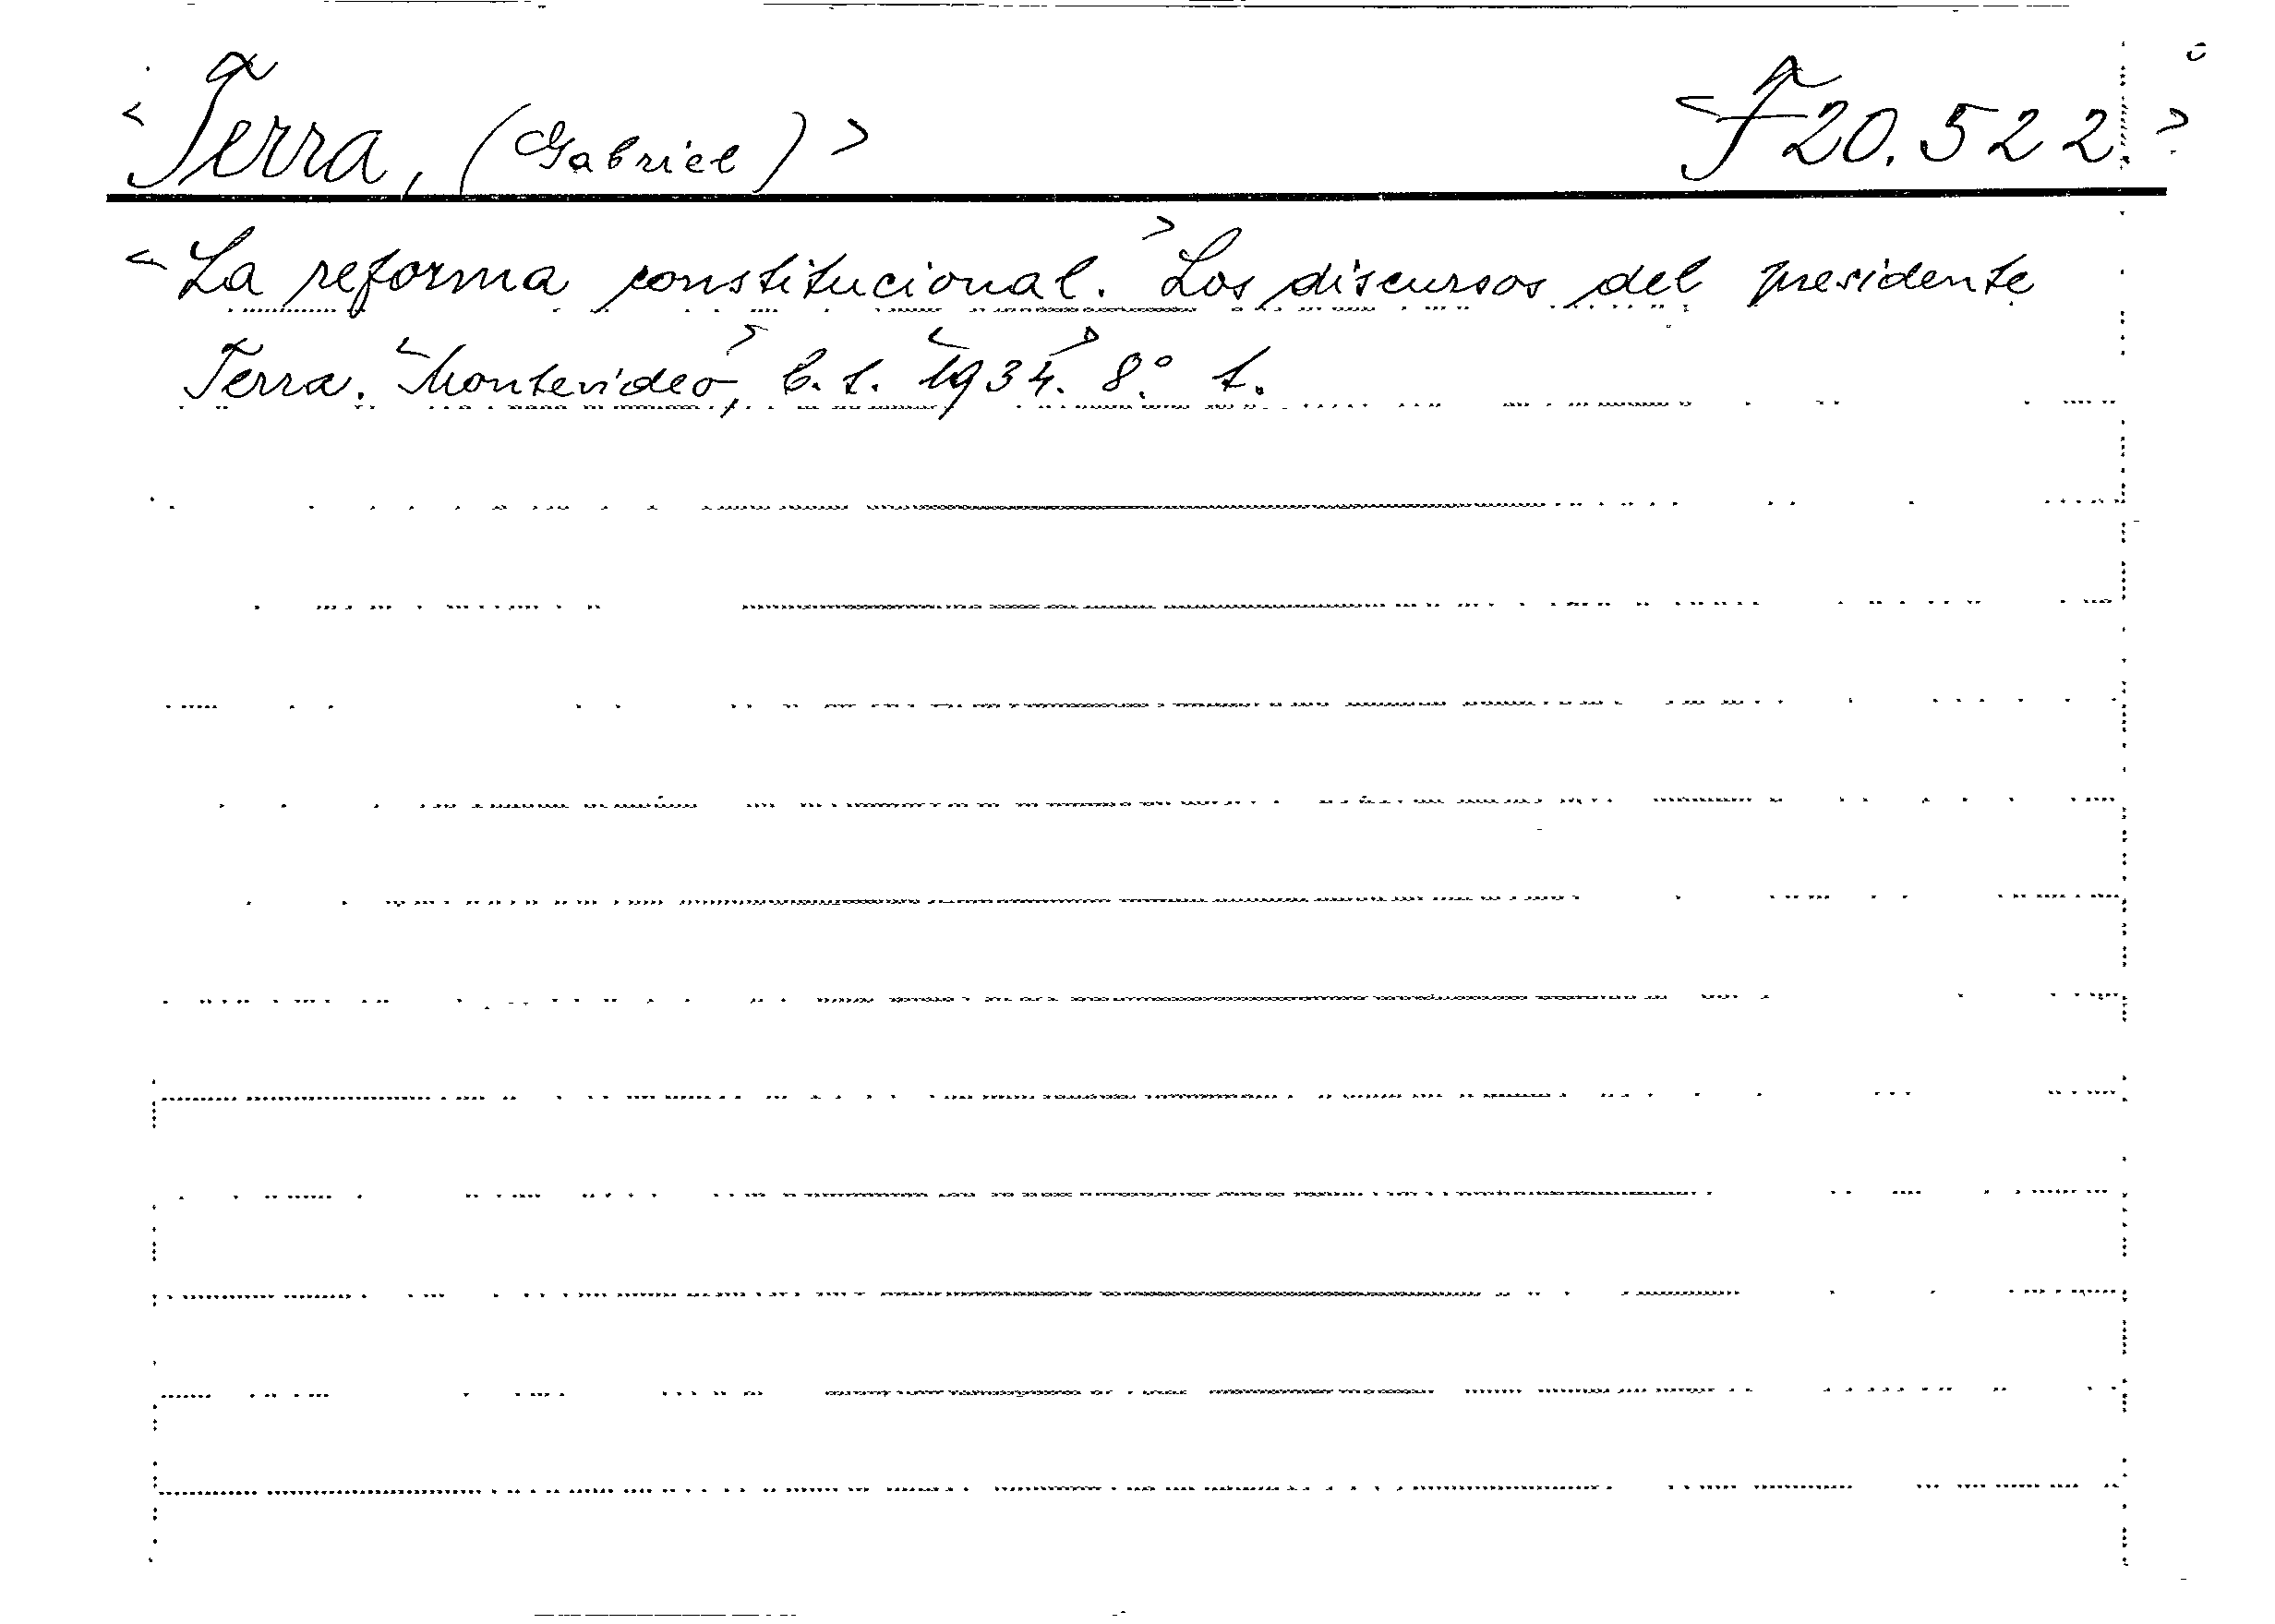 <Terra, (Gabriel)> <F20.522.>
<La reforma constitucional.> Los discursos del presidente
Terra. <Montevideo,> <1934.> 8.°